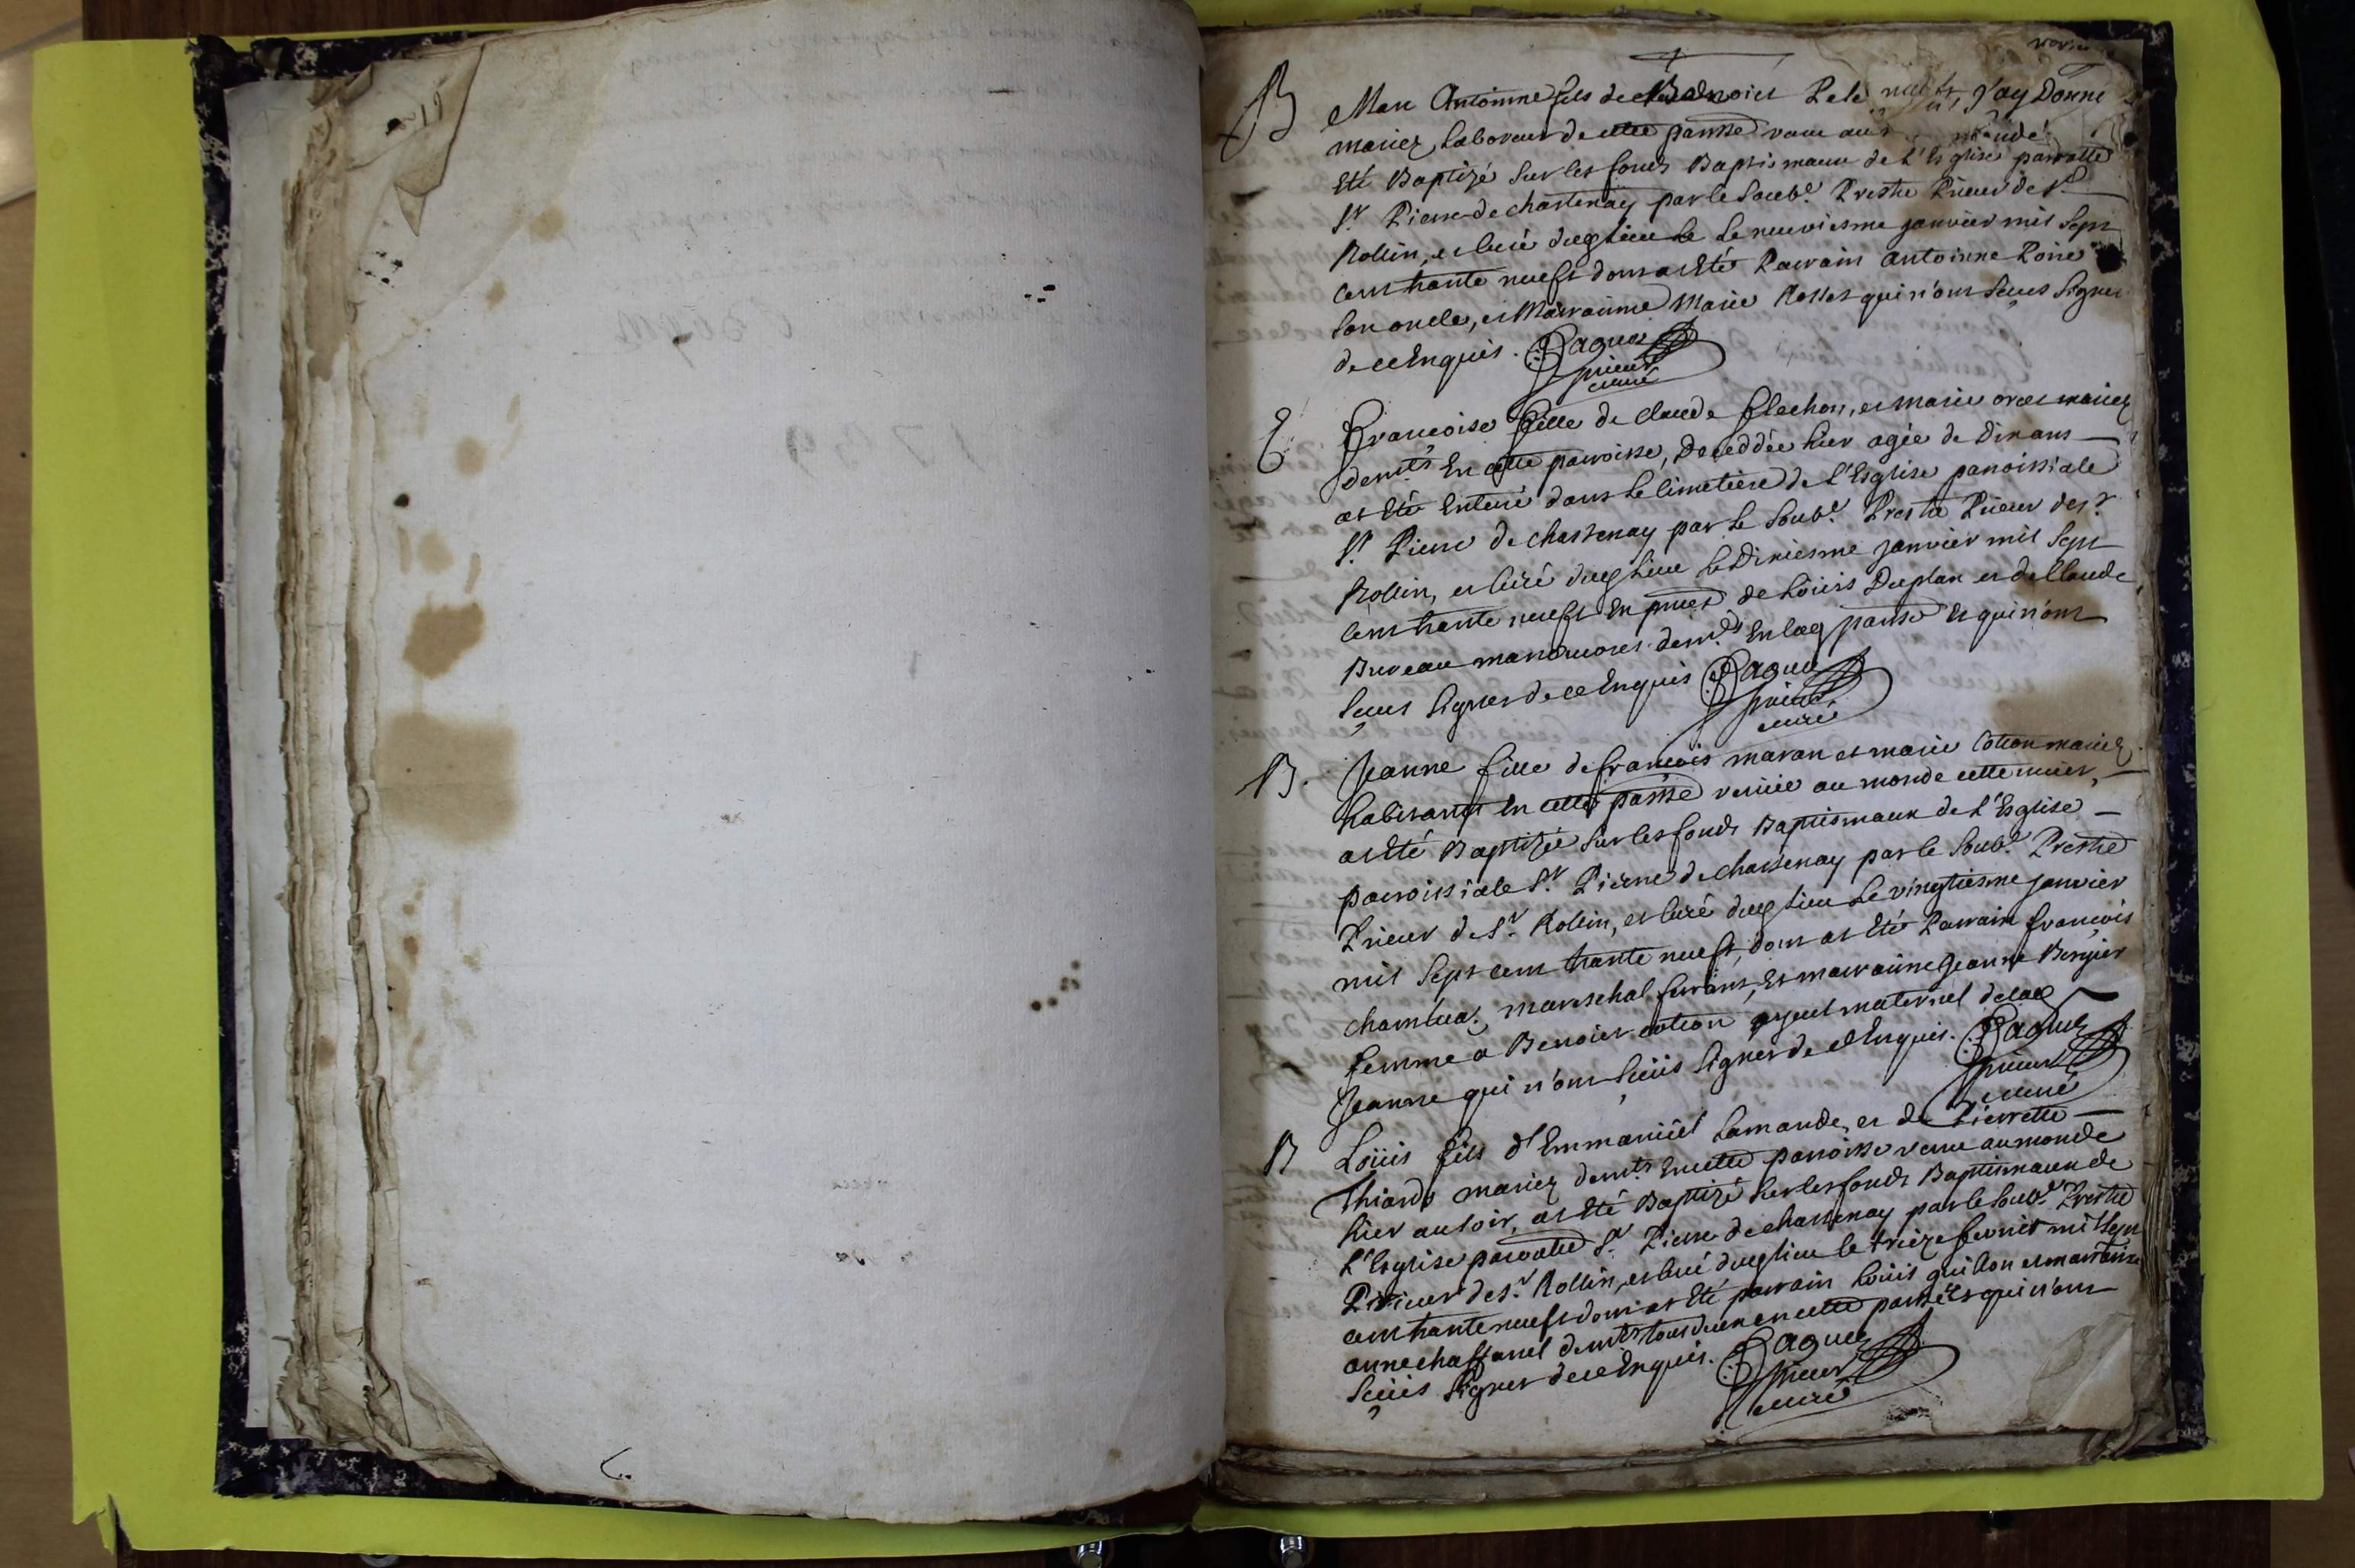 B
Marc Antoinne fils de Benoict Pele J'ay Donne
mariez, Laboreur de cette parrsse venu au monde
Eté Baptizé Sur les fonds Baptismaux de l'Esglise parrolle
St. Pierre de chastenay par le Soubé. Prestre Prieur de St.
Rollin, et Curé dug Lieu Le Le neuviesme janvier mil Sept
cent trante neuft dont at Eté Parrain Antoinne Poire
Son oncle, et Marainne Marie qui n'ont Sceus Signer
de ce Enquis. Paguez
prieur
curé
E
Francoise fille de Claude flechon, et marie mariez
demts. En cette parroisse, Deceddée hier agée de Dix ans
at Eté Enterré dans Le Cimetiere de l'Esglise parroissiale
St. Pierre de chastenay par Le Soubé. Prestre Prieur de St.
Rollin, et Curé dug Lieu Le Dixiesme janvier mil Sept
cent trante neuft En prnce de Loüis Duplan et de Claude
Buveau manouvres demts. En lad parrse Et qui n'ont
Sceus Signer de ce Enquis Paguez
prieur
curé
B.
Jeanne fille de francois maran et marie Cotton mariez
habitants En cette parrsse venüe au monde cette nuict,
at Eté Baptizée Sur les fonds Baptismaux de l'Esglise
parroissiale St. Pierre de chastenay par le Soubé. Prestre
Prieur de St. Rollin, et Curé dug Lieu Le vingtiesme janvier
mil Sept cent trante neuft, dont at Eté Parrain francois
mareschal ferrant, Et marainne Jeanne Bergier
femme a Benoict cotton ayeul maternel de lad
Jeanne qui n'ont Sceüs Signer de ce Enquis. Paguez
prieur
curé
B
Loüis fils d'Emmanüel Lamande, et de Pierrette
Thiard mariez demts. En cette parroisse venu au monde
hier au soir, at Eté Baptizé Sur les fonds Baptismaux de
l'Esglise parrolle St. Pierre de chastenay par le Soubé. Prestre
Prieur de St. Rollin, et Curé dug Lieu le treize fevrier mil Sept
cent trante neuft dont at Eté parrain Loüis guillon et marainne
anne chassanel demts. tous deux en cette parrsse Et qui n'ont
Sceüs Signer de ce Enquis. Paguez
prieur
curé